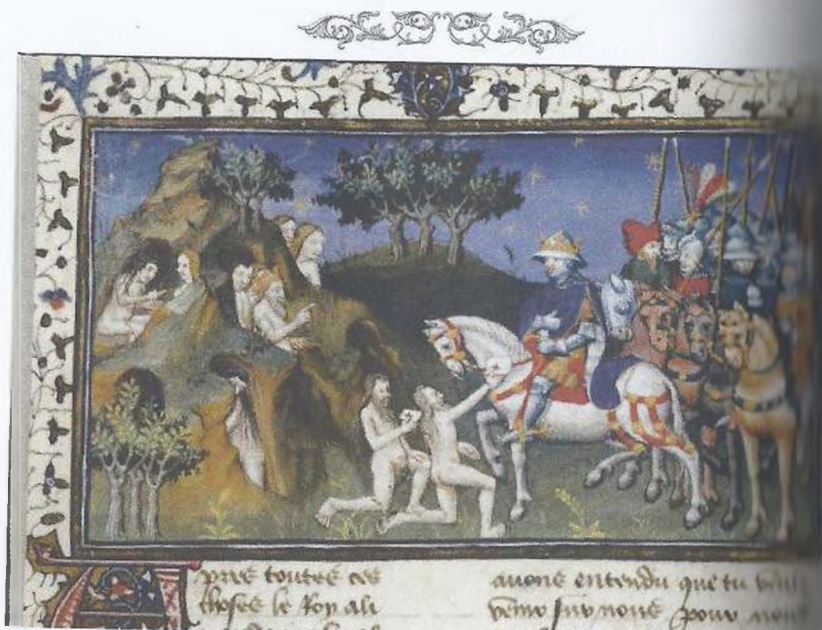 pres toutes ces
choses le Roy ali
auons entendu que tu
venir sur nous pour